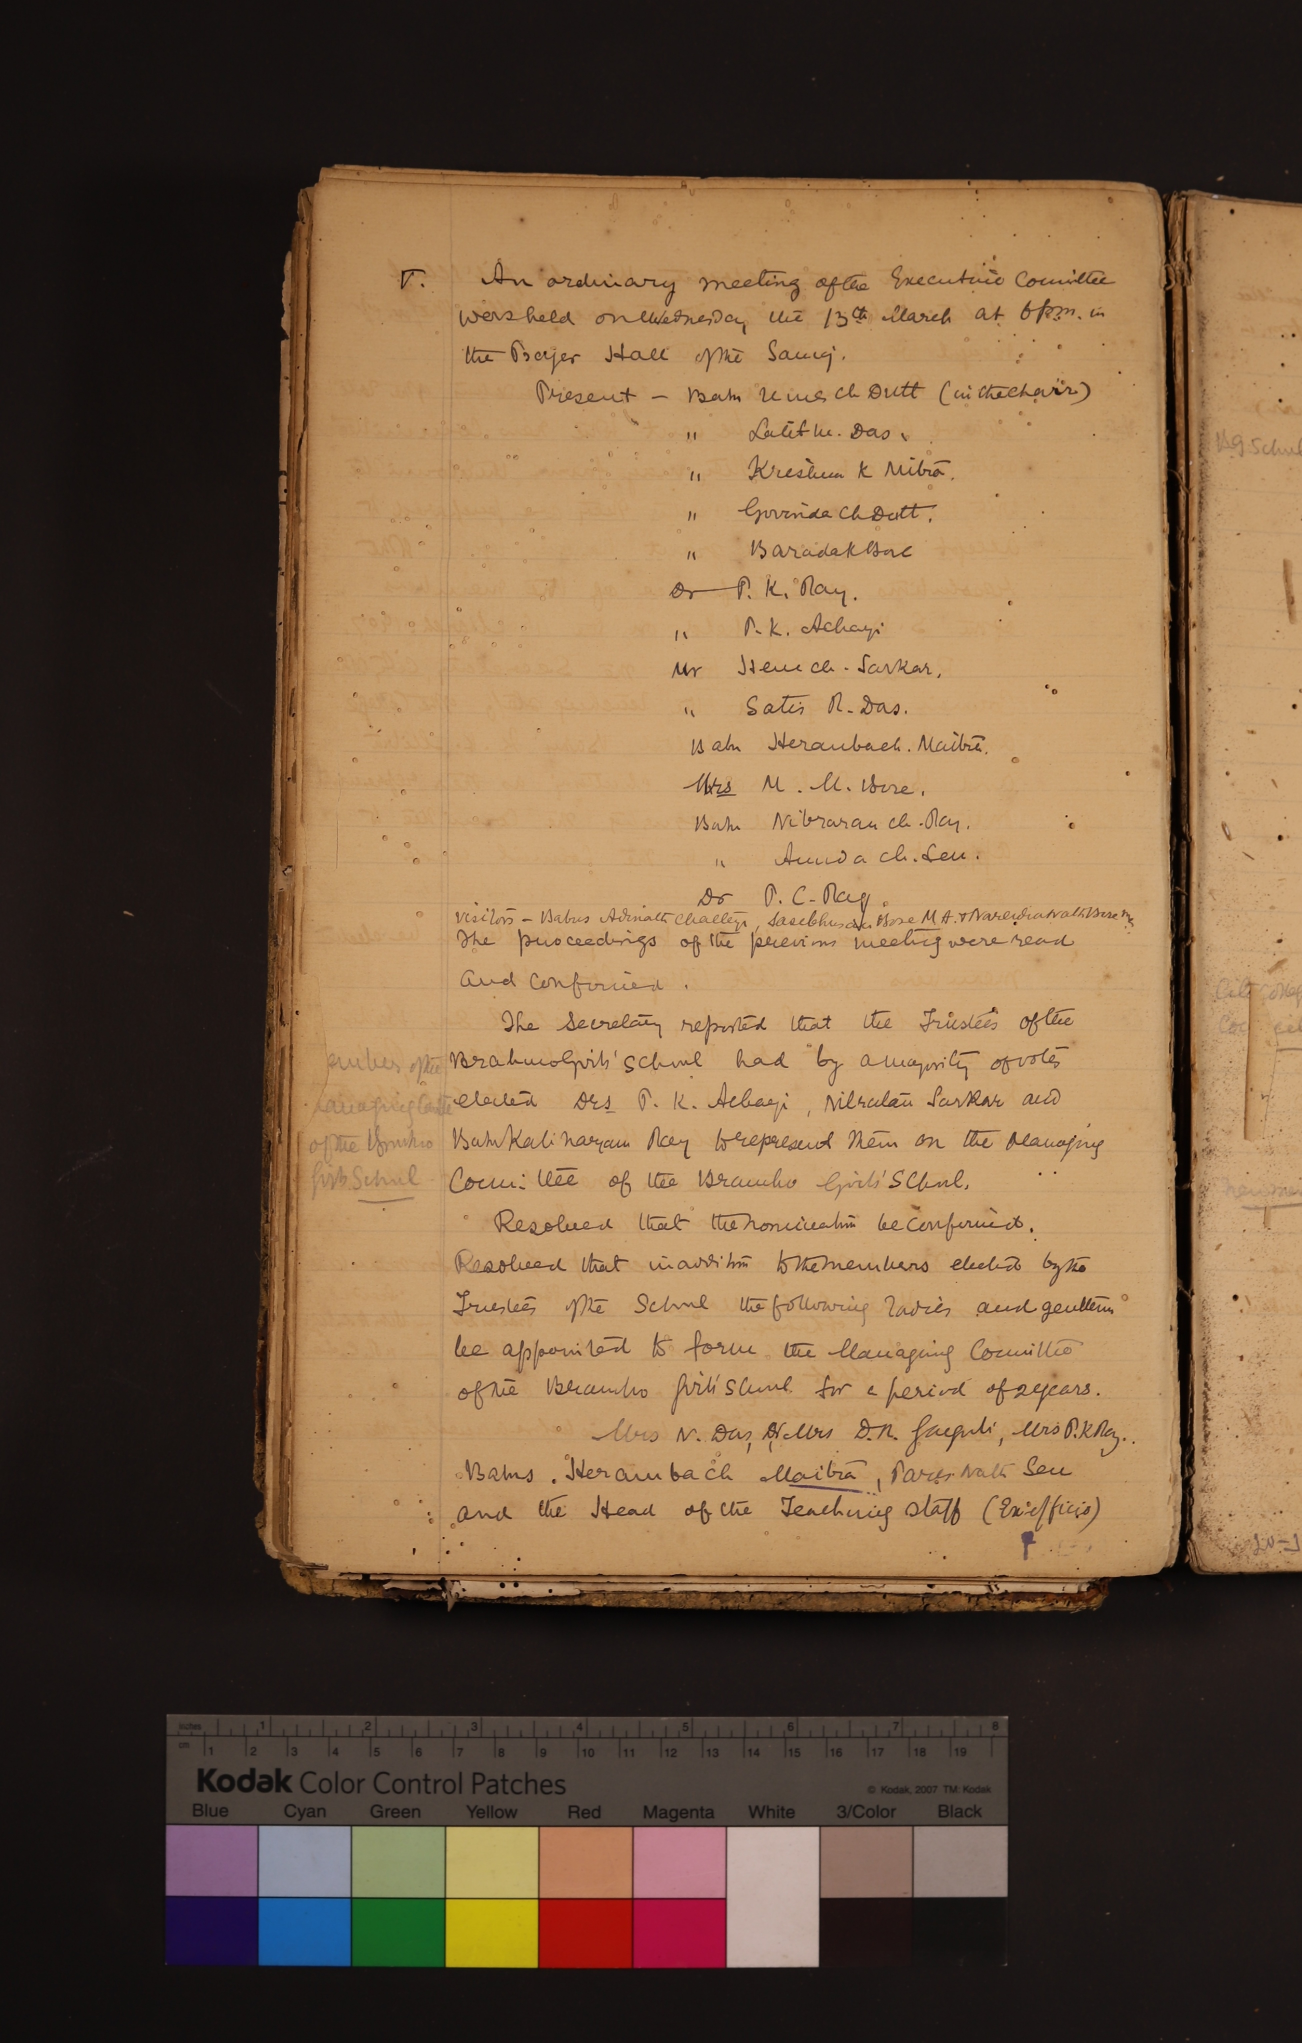 V. An ordinary meeting of the Executive Committee
was held on Wednesday the 13th March at 6 p.m. in
the Prayer Hall of the Samaj.
Present - Babu Umes Ch Dutt (in the chair)
" Lalit M. Das.
" Krishna K Mitra.
" Govinda Ch Dutt.
" Barada K Bose
Dr P. K. Ray.
" P. K. Acharji
Mr Hem Ch. Sarkar.
" Satis R. Das.
Babu Herambach. Maitra.
Mrs M. M. Bose.
Babu Nibraran Ch. Ray.
" Ch. Sen.
Dr P. C. Ray.
Visitors - Babus Adinath Chatterji, Sasibhusan Bose M.A. & Narendra Nath Bose
The proceedings of the previous meeting were read
and confirmed.
The Secretary reported that the Trustees of the
Brahmo Girls' School had by a majority of votes
elected Drs P. K. Acharji, Nilratan Sarkar and
Babu Kalinarayan Ray to represent them on the Managing
Committee of the Bramho Girls' School.
of the
Managing
of the Bramho
Girls School
Resolved that the nomination be confirmed.
Resolved that in addition to the members elected by the
Trustees of the School the following ladies and gentlemen
be appointed to form the Managing Committee
of the Bramho Girls' School for a period of 2 years.
Mrs N. Das, Mrs D. N. Ganguli, Mrs P. K Ray.
Babus. Herambach Maitra, Pares Nath Sen
and the Head of the Teaching Staff (Ex-officio)
inches 1 2 3 4 5 6 7 8
cm 1 2 3 4 5 6 7 8 9 10 11 12 13 14 15 16 17 18 19
Kodak Color Control Patches © Kodak, 2007 TM: Kodak
Blue Cyan Green Yellow Red Magenta White 3/Color Black